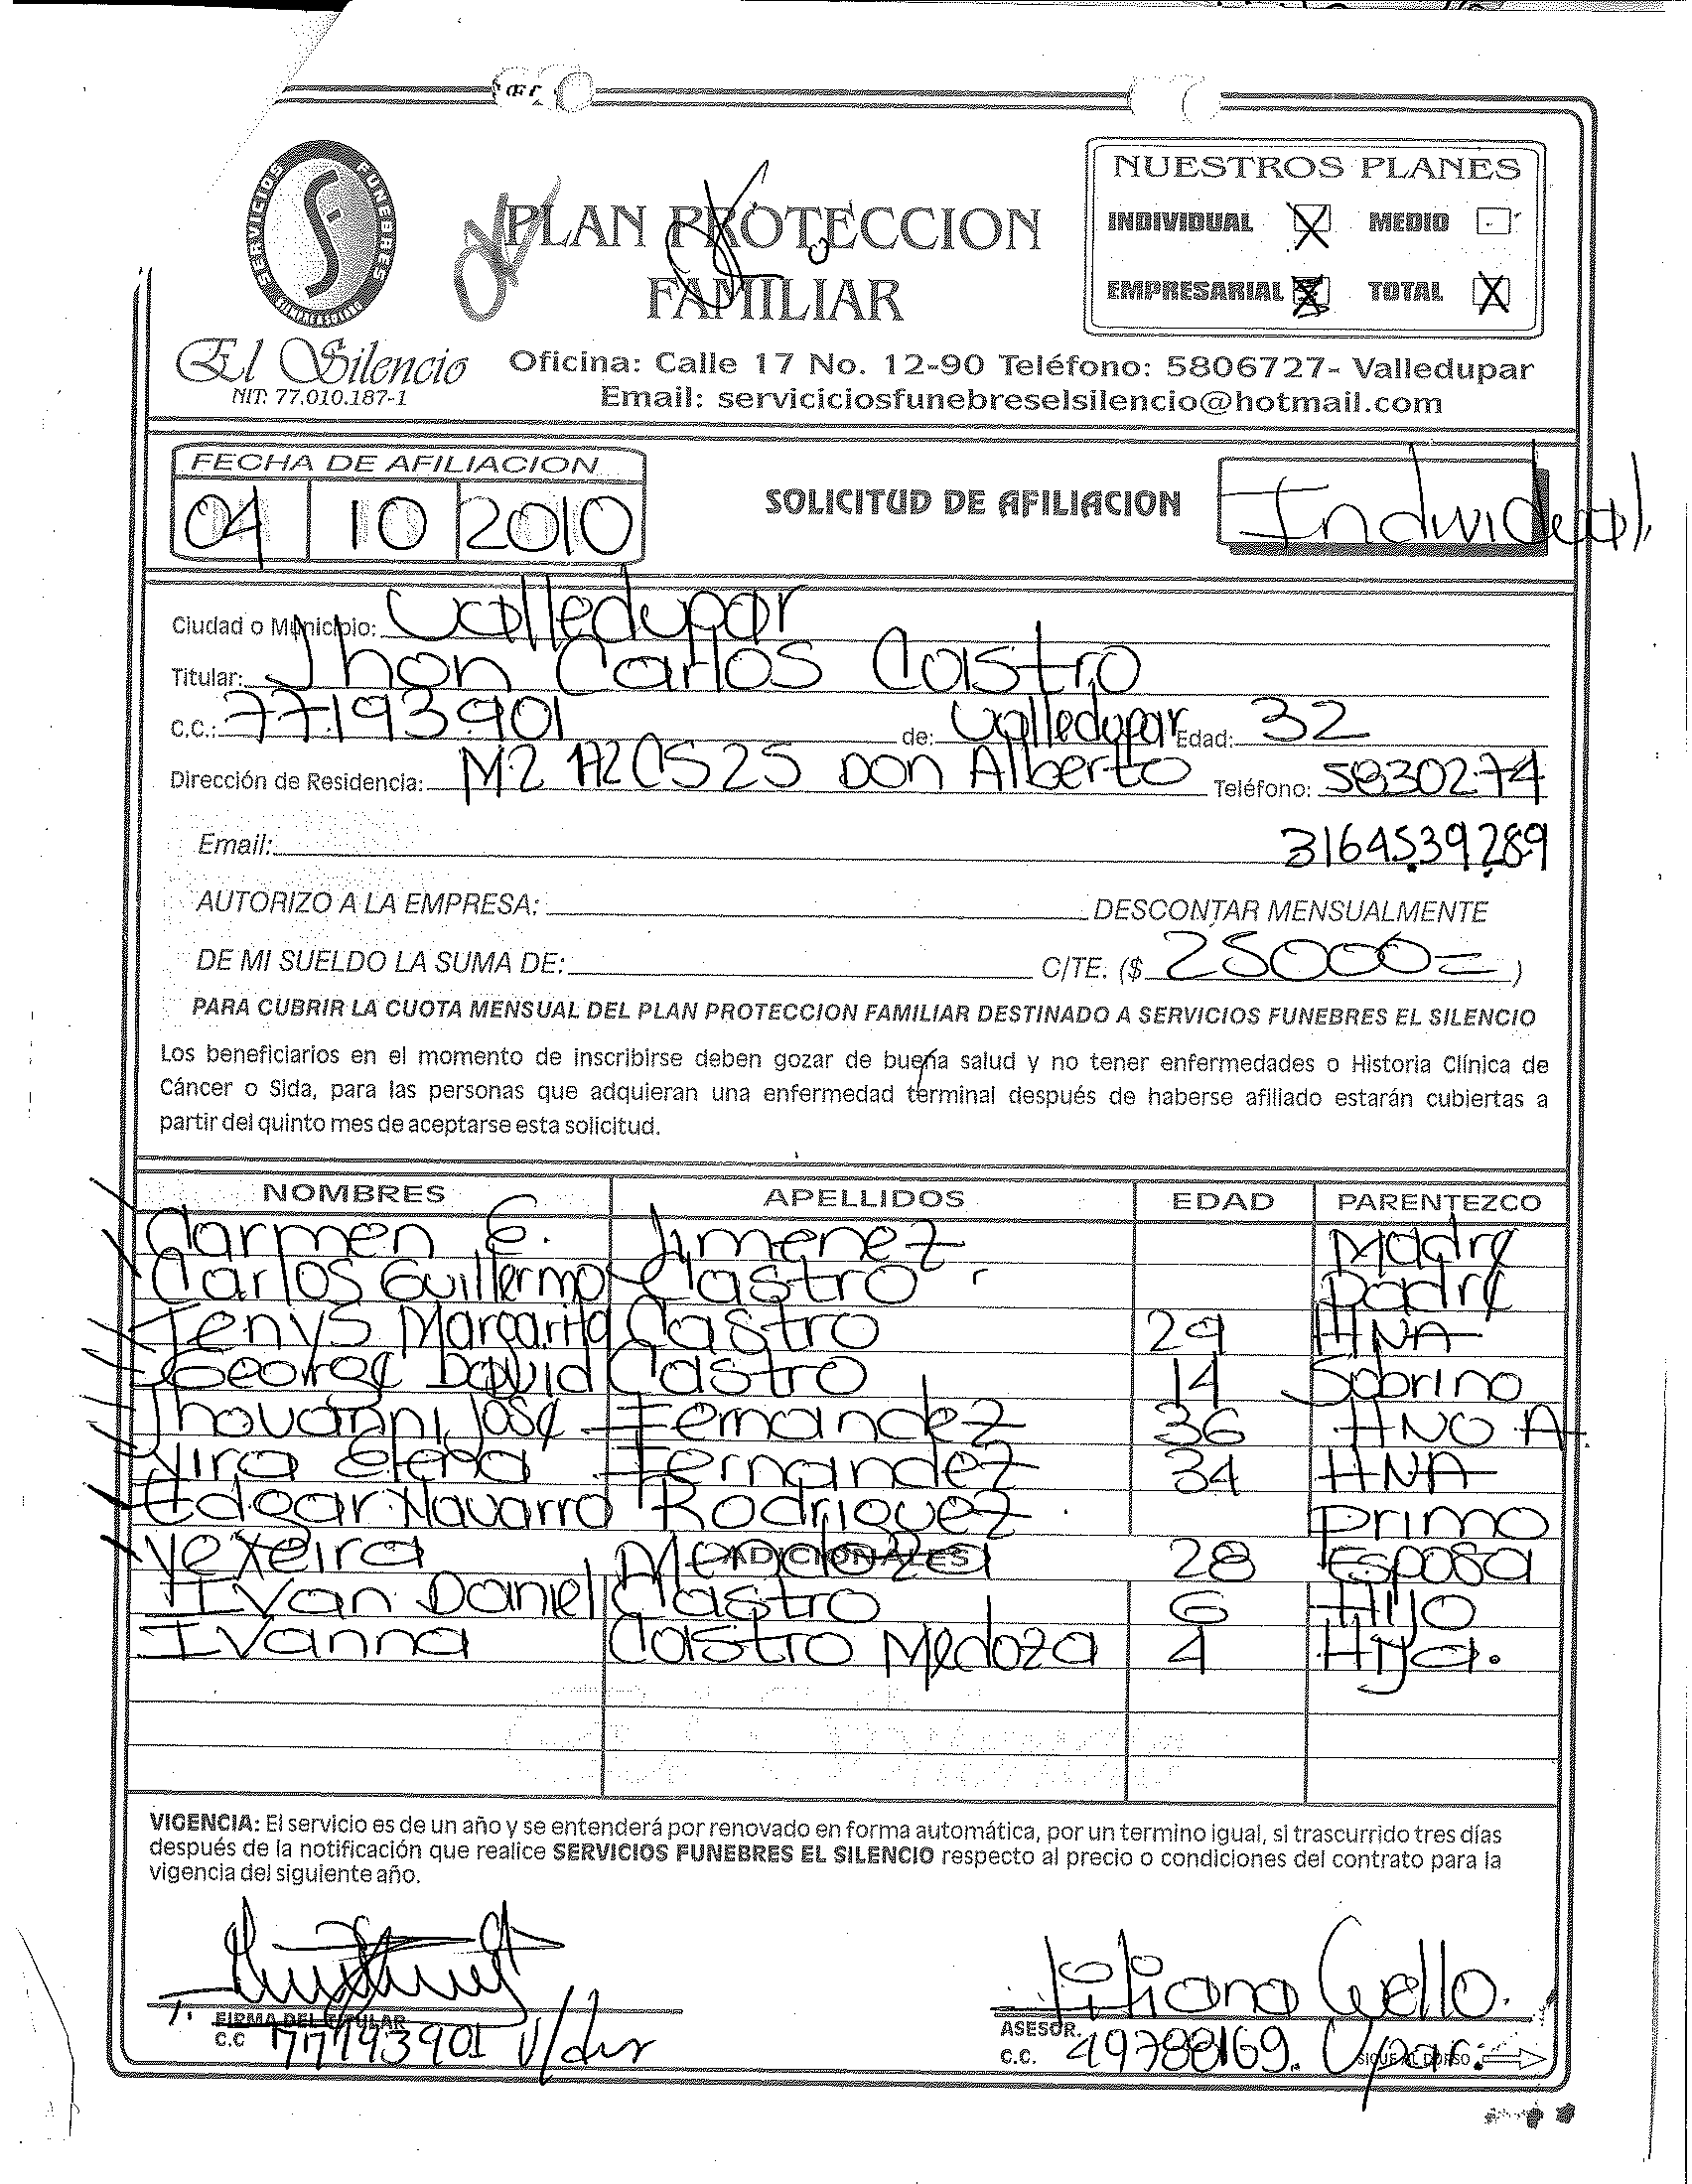 SERVICIOS FUNEBRES
El Silencio
NIT: 77.010.187-1
PLAN PROTECCION
FAMILIAR
NUESTROS PLANES
INDIVIDUAL X MEDIO
EMPRESARIAL X TOTAL X
Oficina: Calle 17 No. 12-90 Teléfono: 5806727- Valledupar
Email: serviciciosfunebreselsilencio@hotmail.com
FECHA DE AFILIACION
04 10 2010
SOLICITUD DE AFILIACION
Individual
Ciudad o Municipio: Valledupar
Titular: Jhon Carlos Castro
C.C.: 77193901 de: Valledupar Edad: 32
Dirección de Residencia: M2 172 CS 25 Don Alberto Teléfono: 5830274
Email: 3164539289
AUTORIZO A LA EMPRESA: DESCONTAR MENSUALMENTE
DE MI SUELDO LA SUMA DE: C/TE. ($ 25000= )
PARA CUBRIR LA CUOTA MENSUAL DEL PLAN PROTECCION FAMILIAR DESTINADO A SERVICIOS FUNEBRES EL SILENCIO
Los beneficiarios en el momento de inscribirse deben gozar de buena salud y no tener enfermedades o Historia Clínica de
Cáncer o Sida, para las personas que adquieran una enfermedad terminal después de haberse afiliado estarán cubiertas a
partir del quinto mes de aceptarse esta solicitud.
NOMBRES APELLIDOS EDAD PARENTEZCO
Carmen E. Jimenez Madre
Carlos Guillermo Castro Padre
Jenys Margarita Castro 29 HNA
George David Castro 14 Sobrino
Jhovanni José Fernandez 36 HNO A.
Nira Elena Fernandez 34 HNA
Edgar Navarro Rodriguez Primo
ADICIONALES
Yexeira Mendoza 28 Esposa
Ivan Daniel Castro 6 Hijo
Ivanna Castro Medoza 4 Hija.
VIGENCIA: El servicio es de un año y se entenderá por renovado en forma automática, por un termino igual, si trascurrido tres días
después de la notificación que realice SERVICIOS FUNEBRES EL SILENCIO respecto al precio o condiciones del contrato para la
vigencia del siguiente año.
FIRMA DEL TITULAR
C.C 77193901 V/dup
Liliana Cuello.
ASESOR.
C.C. 49788169. Vpar.
SIGUE AL DORSO